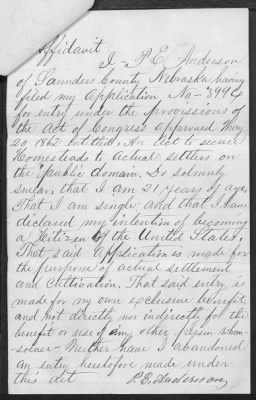 Affidavit
I - P. E. Anderson
of Saunders County Nebraska having
filed my Application No - 3994
for entry under the provissions of
the Act of Congress approved May
20 1862 entitled, An Act to secure
Homesteads to Actual settlers on
the public domain, Do solmnly
swear, that I am 21 years of age,
That I am single and that I have
declared my intention of becoming
a Citizen of the United States,
That said Application is made for
the purpose of actual settlement
and Cultivation. That said entry is
made for my own exclusive benefit
and not directly nor indirectly for the
benefit or use of any other person whom-
soever - Neither have I abandoned
an entry heretofore made under
this act
P. E. Anderson